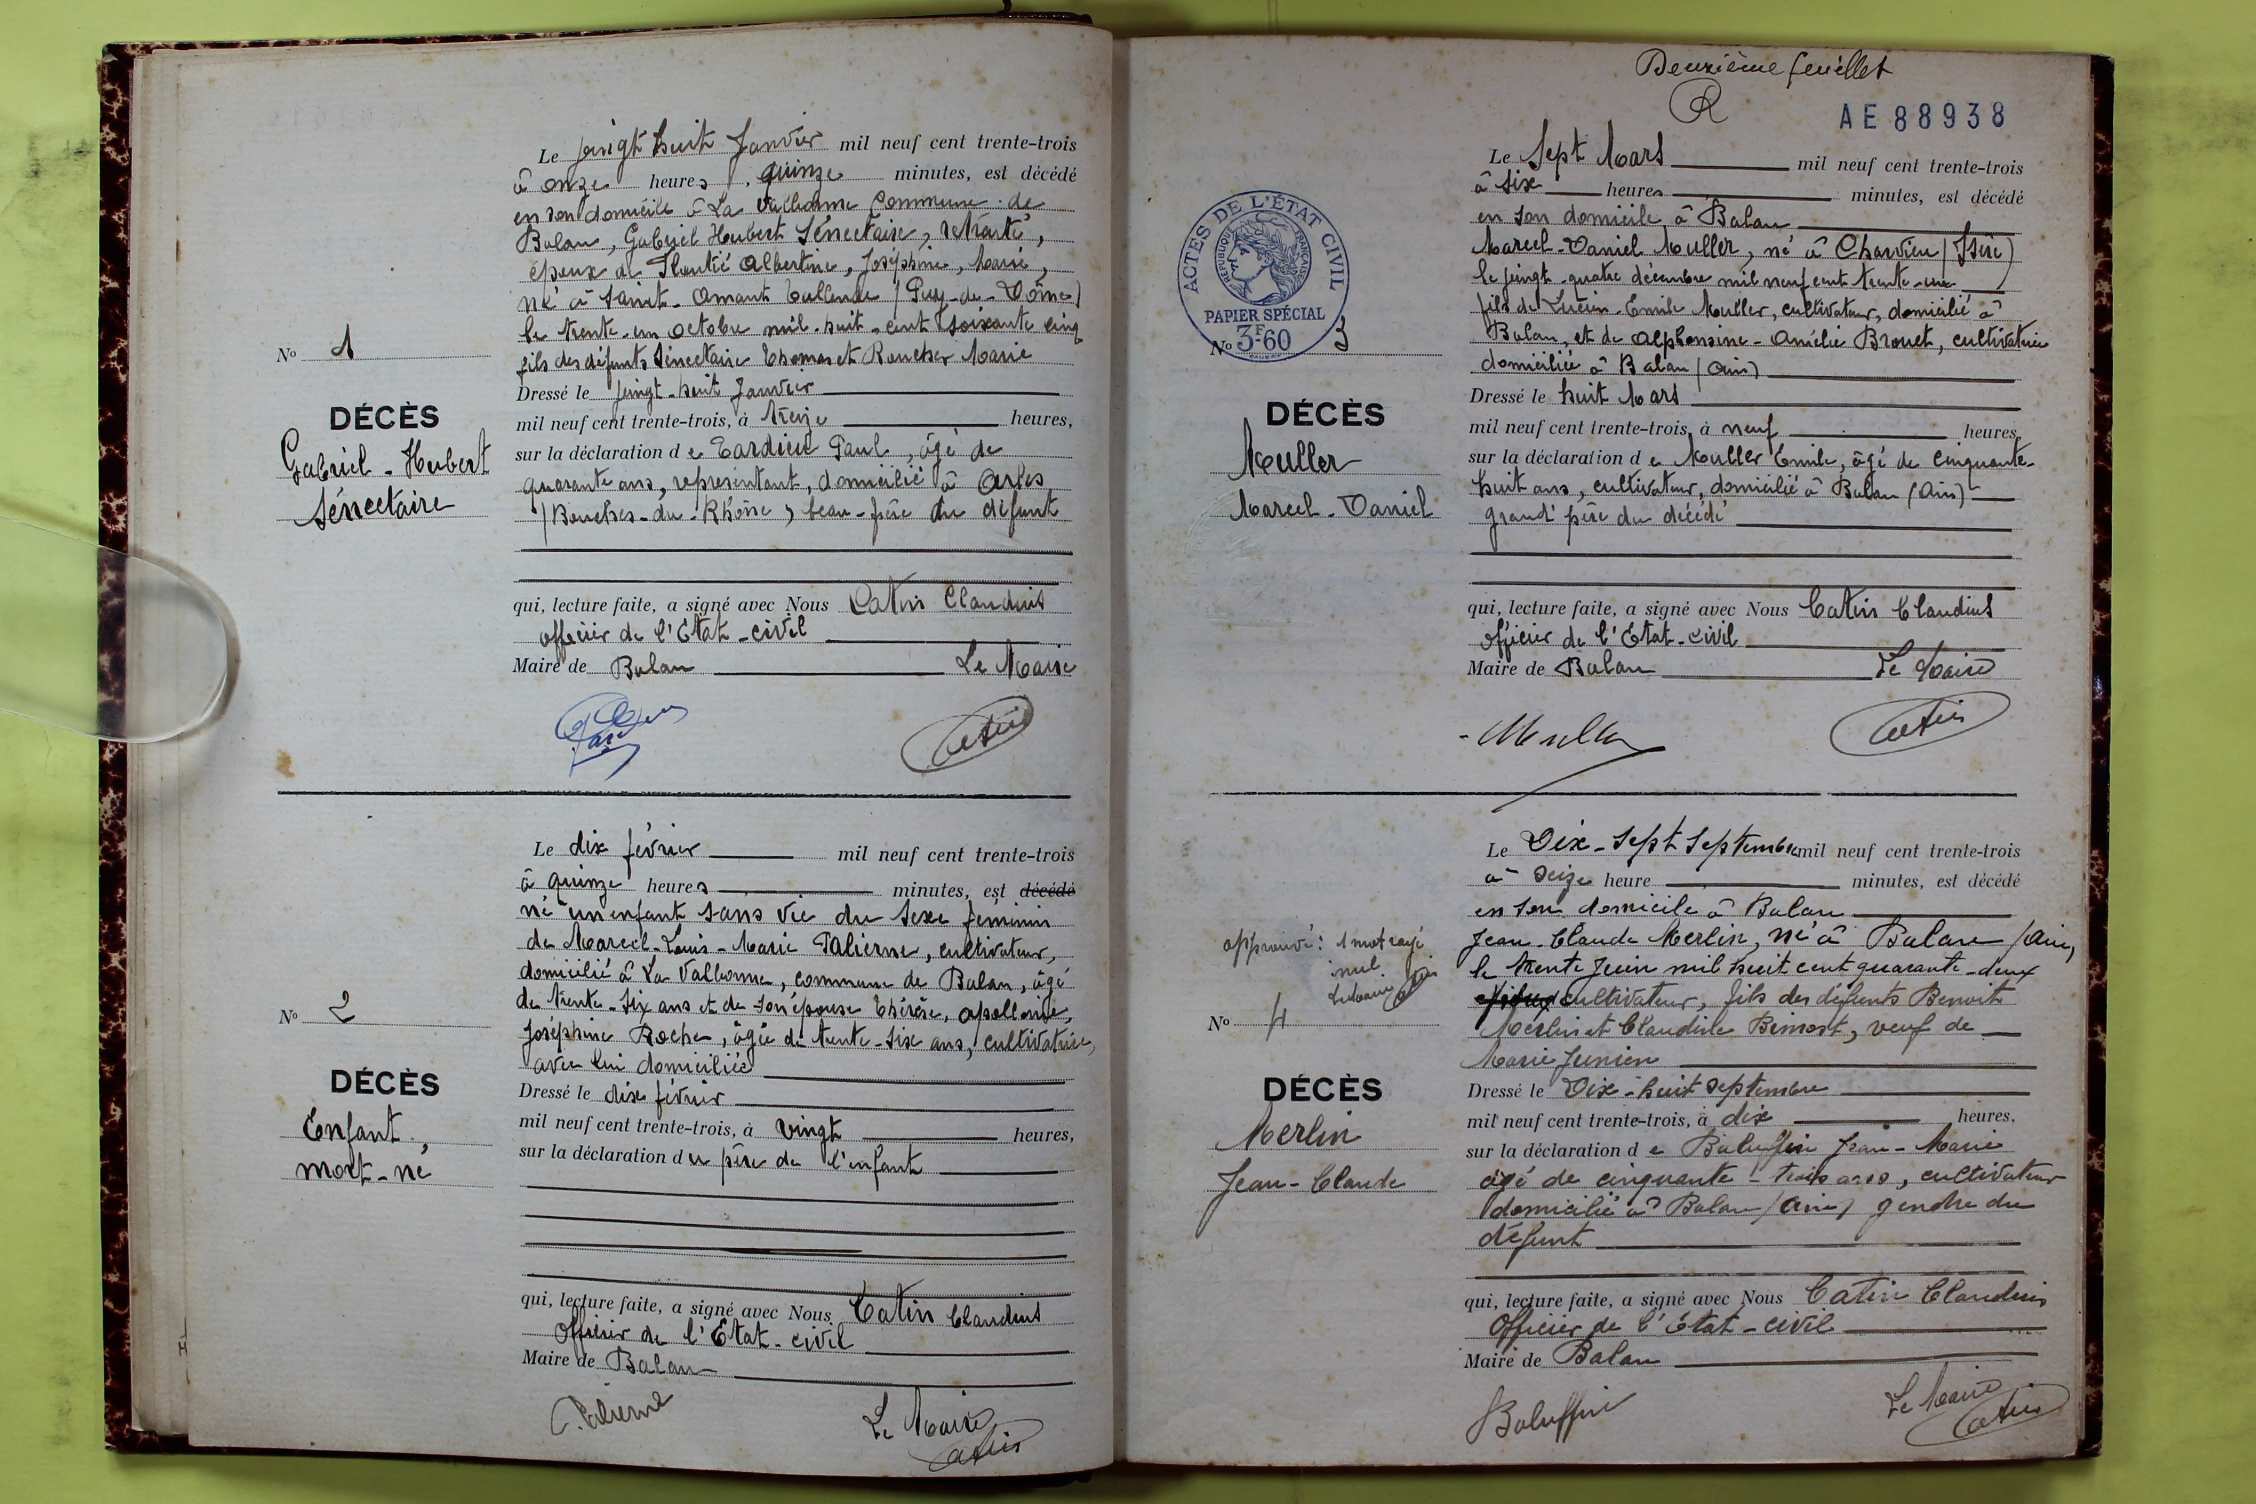 Le vingt huit Janvier mil neuf cent trente-trois
à onze heures, quinze minutes, est décédé
en son domicile à La Valbonne Commune de
Balan, Gabriel Hubert Sénectaire, retraité,
époux de Albertine, Joséphine, Marie,
né à Saint-Amant Tallende (Puy-de-Dôme)
le trente-un octobre mil-huit-cent soixante cinq
fils des défunts Sénectaire Thomas et Roucher Marie
Nº 1
Dressé le vingt-huit Janvier
DÉCÈS
mil neuf cent trente-trois, à treize heures,
Gabriel-Hubert
Sénectaire
sur la déclaration de Tardieu Paul, âgé de
quarante ans, représentant, domicilié à Arles
(Bouches-du-Rhône), beau-frère du défunt
qui, lecture faite, a signé avec Nous Catin Claudius
officier de l'Etat-civil
Maire de Balan Le Maire
Catin
Le dix février mil neuf cent trente-trois
à quinze heures minutes, est décédé
né un enfant sans vie du sexe féminin
de Marcel-Louis-Marie Palierne, cultivateur,
domicilié à La Valbonne, commune de Balan, âgé
de trente-six ans et de son épouse Thérèse, Apollonie,
Joséphine Roche, âgée de trente-six ans, cultivatrice,
avec lui domiciliée
Nº 2
DÉCÈS
Enfant
mort-né
Dressé le dix février
mil neuf cent trente-trois, à vingt heures,
sur la déclaration du père de l'enfant
qui, lecture faite, a signé avec Nous Catin Claudius
Officier de l'État-civil
Maire de Balan
Palierne Le Maire
Catin
Deuxième feuillet
AE 88938
Le Sept Mars mil neuf cent trente-trois
à six heures minutes, est décédé
en son domicile à Balan
Marcel-Daniel Muller, né à Charvieu (Isère)
le vingt-quatre décembre mil neuf cent trente-un
fils de Lucien-Emile Muller, cultivateur, domicilié à
Balan, et de Alphonsine-Amélie Brouet, cultivatrice
domiciliée à Balan (Ain)
ACTES DE L'ÉTAT CIVIL
RÉPUBLIQUE FRANÇAISE
PAPIER SPÉCIAL
3F60
Nº 3
DÉCÈS
Muller
Marcel-Daniel
Dressé le huit Mars
mil neuf cent trente-trois, à neuf heures,
sur la déclaration de Muller Emile, âgé de cinquante-
huit ans, cultivateur, domicilié à Balan (Ain)
grand'père du décédé
qui, lecture faite, a signé avec Nous Catin Claudius
officier de l'Etat-civil
Maire de Balan Le Maire
Muller Catin
Le Dix-Sept Septembre mil neuf cent trente-trois
à seize heure minutes, est décédé
en son domicile à Balan
Jean-Claude Merlin, né à Balan (Ain),
le trente Juin mil huit cent quarante-deux
cultivateur, fils des défunts Benoit
Merlin et Claudine Bimost, veuf de
Marie Junien
approuvé: 1 mot rayé
nul
Le Maire Catin
Nº 4
DÉCÈS
Merlin
Jean-Claude
Dressé le Dix-huit septembre
mil neuf cent trente-trois, à dix heures.
sur la déclaration de Baluffin Jean-Marie
âgé de cinquante-trois ans, cultivateur
domicilié à Balan (Ain) gendre du
défunt
qui, lecture faite, a signé avec Nous Catin Claudius
Officier de l'État-civil
Maire de Balan
Baluffin Le Maire
Catin